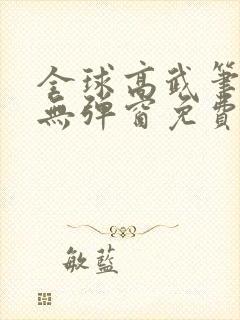 全球高武筆
無彈窗免費
敏藍